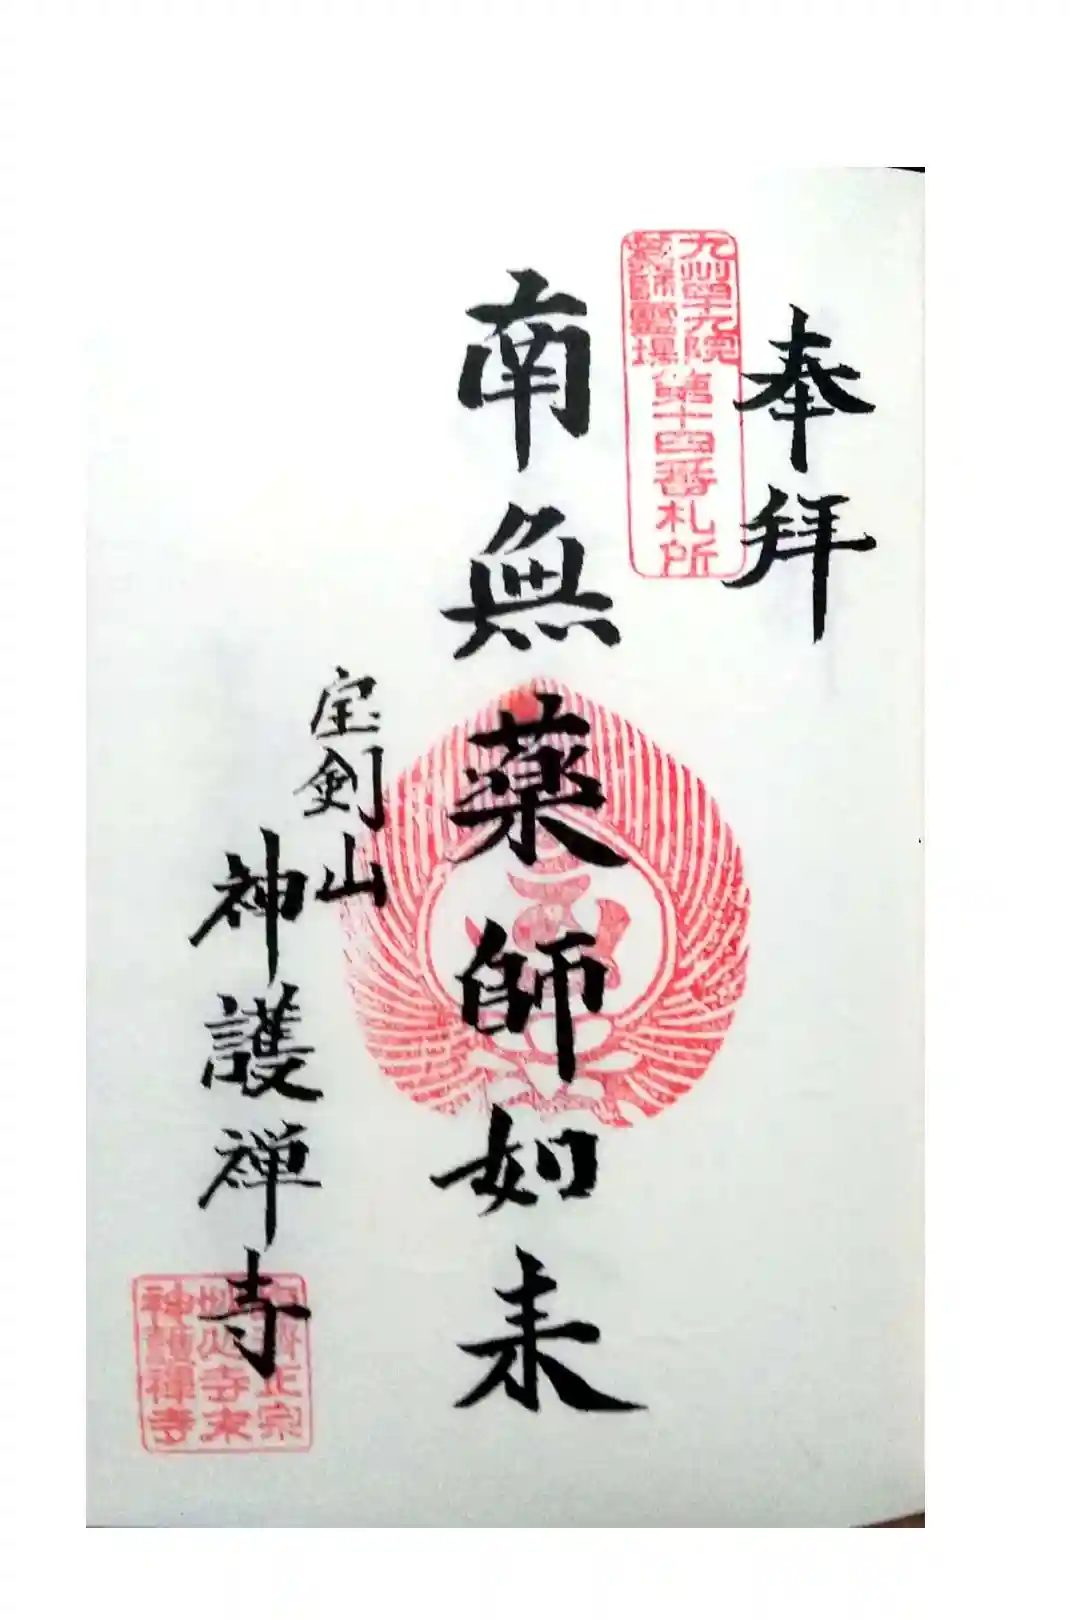 奉拝
九州四十九院
薬師霊場
第十四番札所
南無薬師如来
宝剣山
神護禅寺
臨済正宗
妙心寺末
神護禅寺